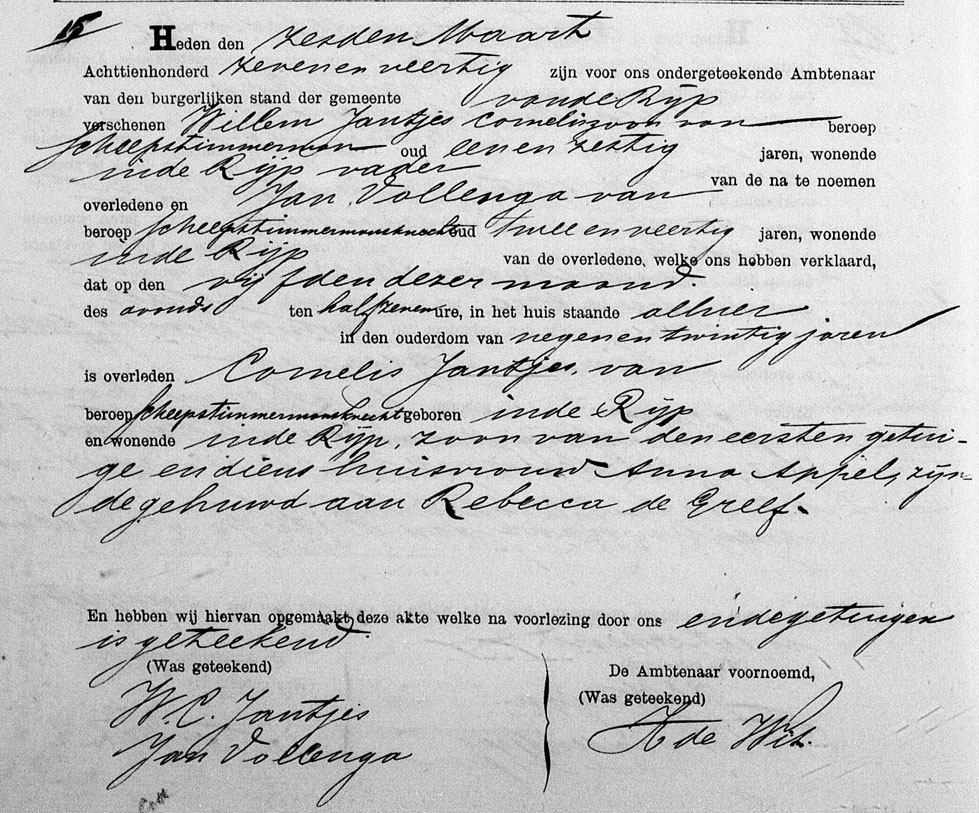 15
Heden den zesden Maart
Achttienhonderd zevenenveertig zijn voor ons ondergeteekende Ambtenaar
van den burgerlijken stand der gemeente van de Rijp
verschenen Willem Jantjes Corneliszoon van beroep
scheepstimmerman oud eenenzestig jaren, wonende
in de Rijp vader van de na te noemen
overledene en Jan Vollenga van
beroep scheepstimmermansknecht oud tweeenveertig jaren, wonende
in de Rijp van de overledene, welke ons hebben verklaard,
dat op den vijfden dezer maand.
des avonds ten half zeven ure, in het huis staande alhier
in den ouderdom van negenentwintig jaren
is overleden Cornelis Jantjes, van
beroep scheepstimmermansknecht geboren in de Rijp
en wonende in de Rijp, zoon van den eersten getui-
ge en diens huisvrouw Anna Appel, zijn-
de gehuwd aan Rebecca de Greef.
En hebben wij hiervan opgemaakt deze akte welke na voorlezing door ons en de getuigen
is geteekend
(Was geteekend)
W. C. Jantjes
Jan Vollenga
De Ambtenaar voornoemd,
(Was geteekend)
A de Wit.